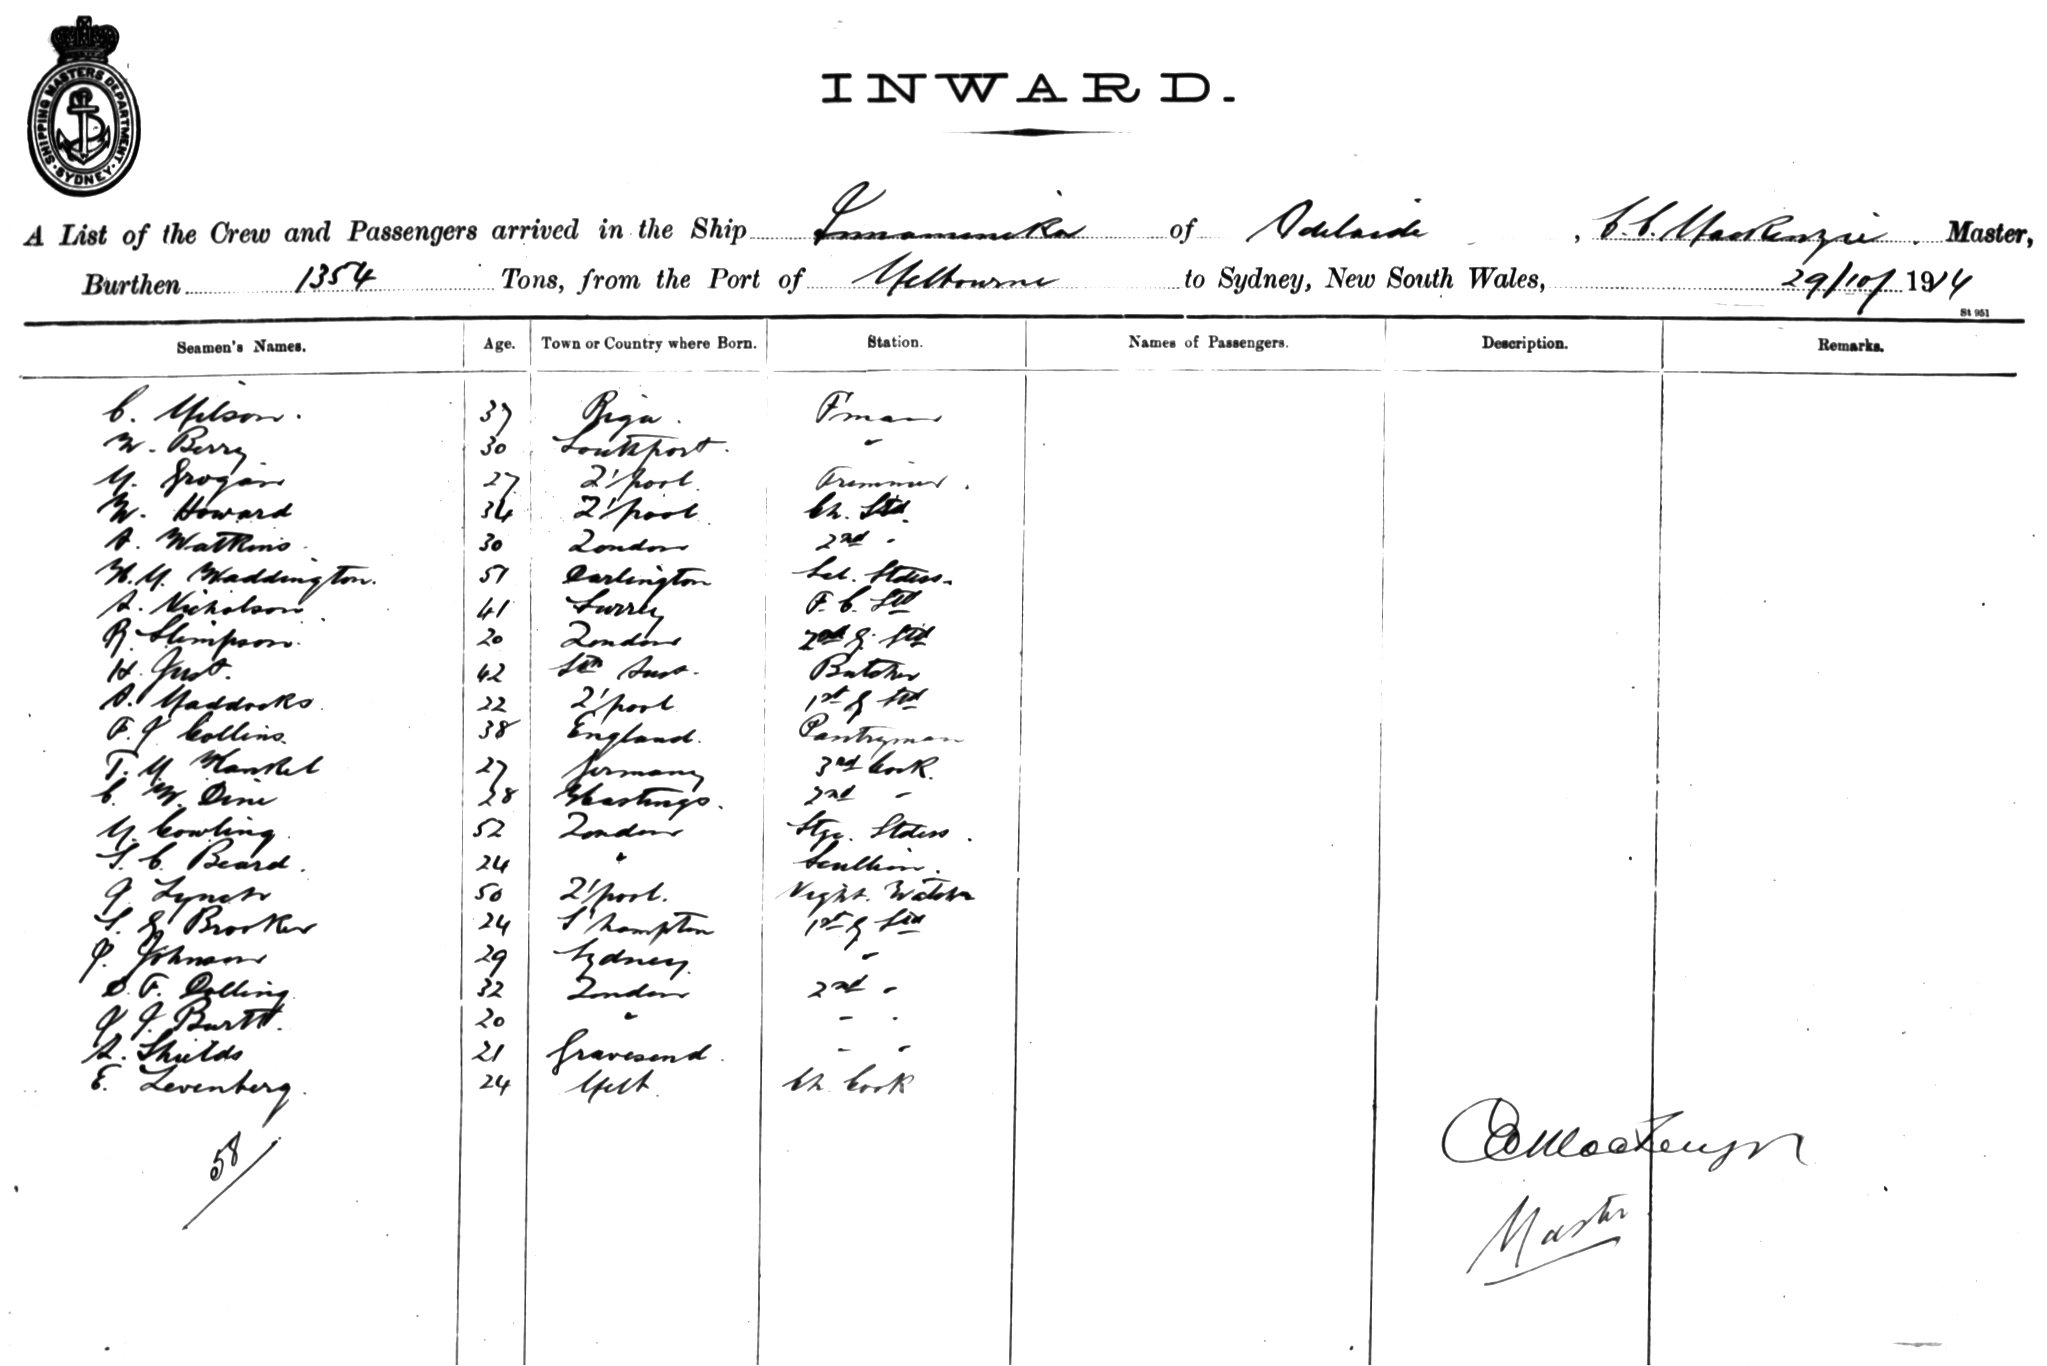 SHIPPING MASTERS DEPARTMENT
SYDNEY
INWARD.
A List of the Crew and Passengers arrived in the Ship Innamincka of Adelaide, C. C. MacKenzie. Master,
Burthen 1354 Tons, from the Port of Melbourne to Sydney, New South Wales, 29/10/1914
St 951
Seamen's Names. Age. Town or Country where Born. Station. Names of Passengers. Description. Remarks.
C. Milson. 37 Riga. F'man
W. Berry 30 Southport. "
M. Grogan 27 L'pool Trimmer.
W. Howard 34 L'pool Ch. Std.
A. Watkins 30 London 2nd "
W. M. Waddington. 51 Darlington Sal. Stdess.
A. Nicholson 41 Surrey F. C. Std
R. Simpson. 20 London 2nd G. Std
H. Just. 42 Sth Aust. Butcher
A. Maddocks 22 L'pool 1st G Std
F. J Collins 38 England. Pantryman
T. M Hankel 27 Germany 3rd Cook.
C. W. Dine 28 Hastings. 2nd "
M. Cowling 52 London Stge. Stdess.
S. C. Beard. 24 " Scullion.
J. Lynch 50 L'pool. Night. Watchn
S. G Brooker 24 S'hampton 1st G Std
J. Johnson 29 Sydney "
D. F. Dolling 32 London 2nd "
J J. Burtt. 20 " " "
A. Shields 21 Gravesend. " "
E. Levenberg. 24 Melb Ch. Cook
58/
CC MacKenzie
Master